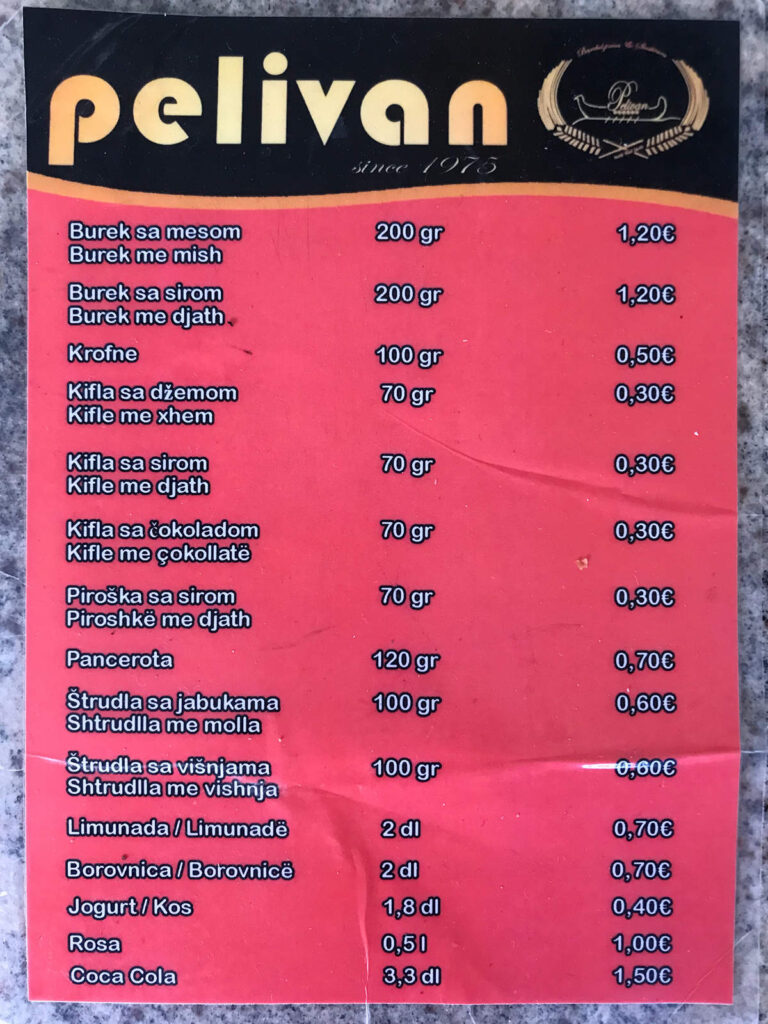 pelivan
since 1975
Pelivan
Burek sa mesom 200 gr 1,20€
Burek me mish
Burek sa sirom 200 gr 1,20€
Burek me djath
Krofne 100 gr 0,50€
Kifla sa džemom 70 gr 0,30€
Kifle me xhem
Kifla sa sirom 70 gr 0,30€
Kifle me djath
Kifla sa čokoladom 70 gr 0,30€
Kifle me çokollatë
Piroška sa sirom 70 gr 0,30€
Piroshkë me djath
Pancerota 120 gr 0,70€
Štrudla sa jabukama 100 gr 0,60€
Shtrudlla me molla
Štrudla sa višnjama 100 gr 0,60€
Shtrudlla me vishnja
Limunada / Limunadë 2 dl 0,70€
Borovnica / Borovnicë 2 dl 0,70€
Jogurt / Kos 1,8 dl 0,40€
Rosa 0,5 l 1,00€
Coca Cola 3,3 dl 1,50€